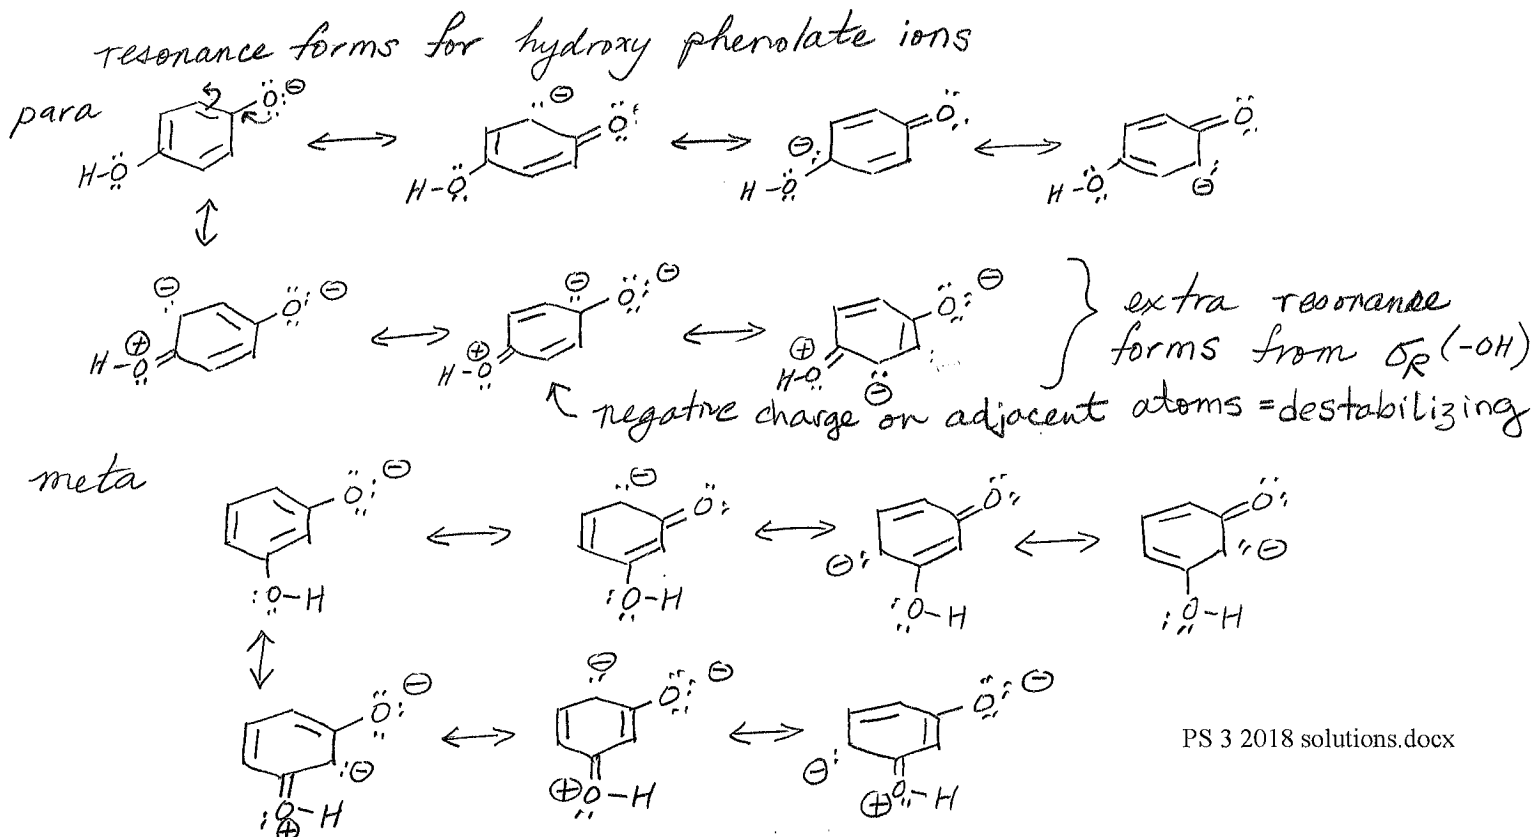 resonance forms for hydroxy phenolate ions
para
O: ⊖
H-O
⊖
O
H-O
O
⊖
H-O
O
H-O
⊖
⊖
O: ⊖
⊕
H-O
⊖
O: ⊖
⊕
H-O
O: ⊖
⊕
H-O
⊖
extra resonance
forms from σR(-OH)
negative charge on adjacent atoms = destabilizing
meta
O: ⊖
:O-H
⊖
O
:O-H
O
⊖
:O-H
O
⊖
:O-H
O: ⊖
⊖
:O-H
⊕
⊖
O: ⊖
⊕O-H
O: ⊖
⊖
⊕O-H
PS 3 2018 solutions.docx